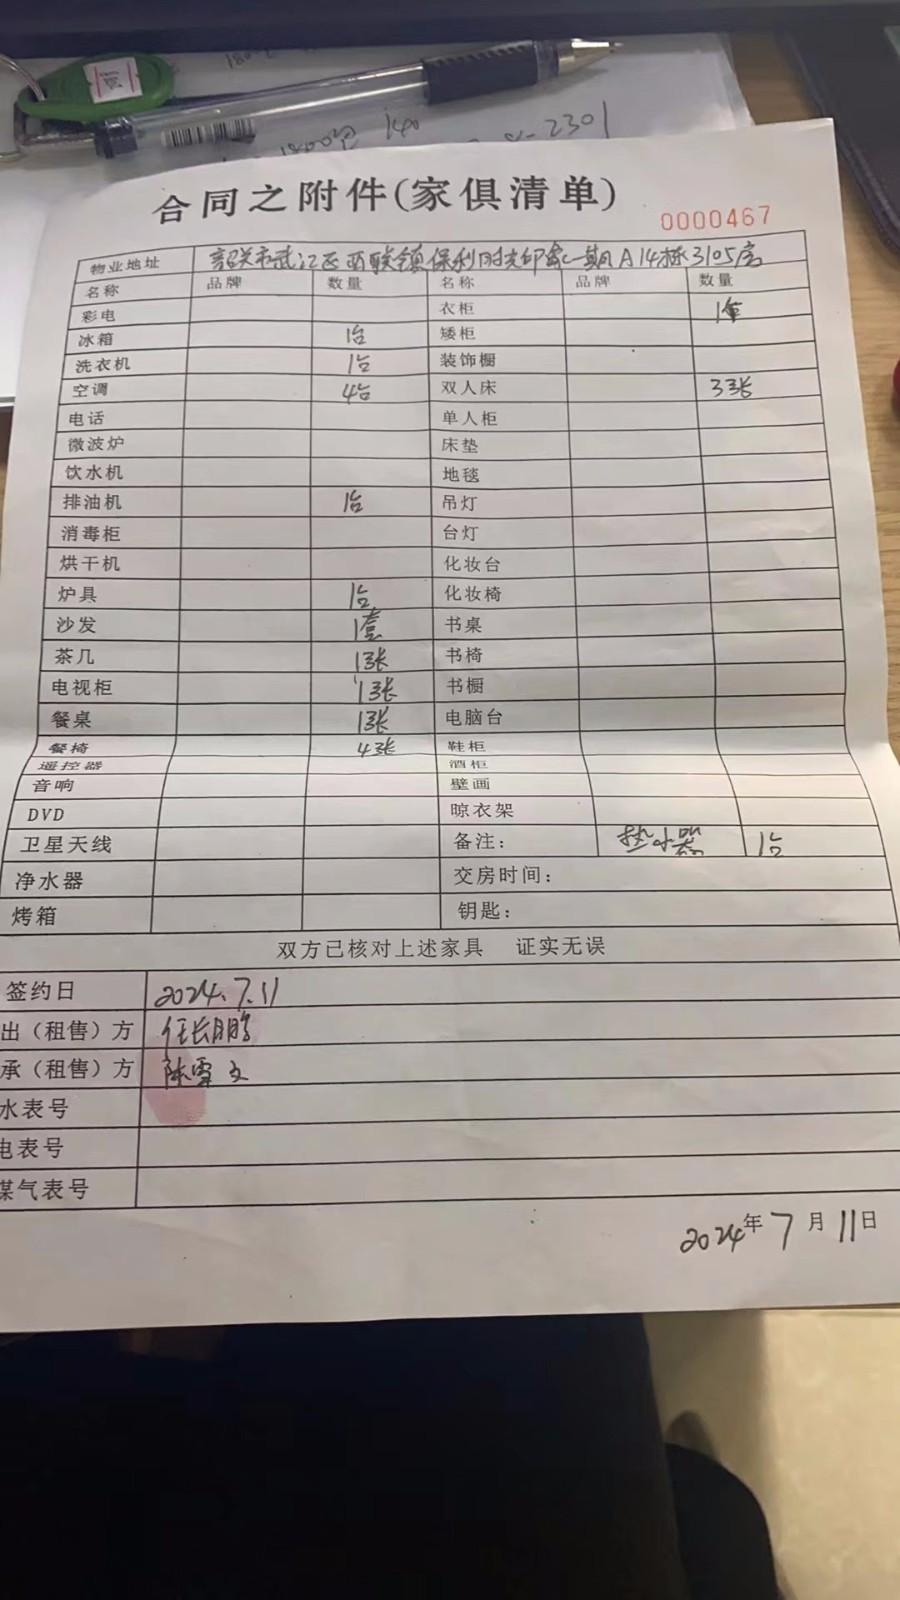 2301
合同之附件(家俱清单)
0000467
物业地址 韶关市武江区西联镇保利时光印象二期A14栋3105房
名称 品牌 数量 名称 品牌 数量
彩电 衣柜 1
冰箱 1台 矮柜
洗衣机 1台 装饰橱
空调 4台 双人床 3张
电话 单人柜
微波炉 床垫
饮水机 地毯
排油机 1台 吊灯
消毒柜 台灯
烘干机 化妆台
炉具 1台 化妆椅
沙发 1套 书桌
茶几 1张 书椅
电视柜 1张 书橱
餐桌 1张 电脑台
餐椅 4张 鞋柜
遥控器 酒柜
音响 壁画
DVD 晾衣架
卫星天线 备注: 热水器 1台
净水器 交房时间:
烤箱 钥匙:
双方已核对上述家具 证实无误
签约日 2024.7.11
出（租售）方 任长鹏
承（租售）方 陈雪文
水表号
电表号
煤气表号
2024年7月11日